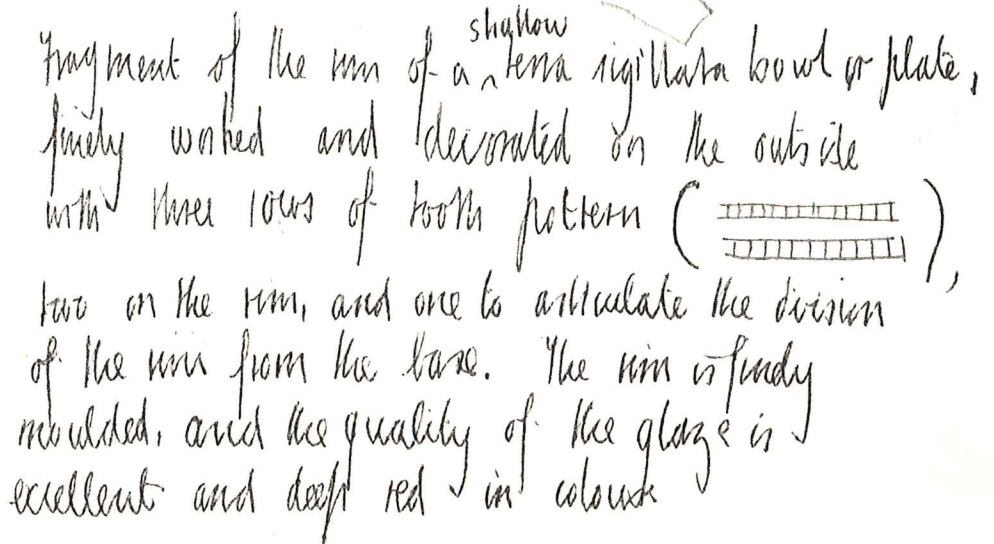 Fragment of the rim of a shallow terra sigillata bowl or plate,
finely worked and decorated on the outside
with three rows of tooth pattern ( ),
two on the rim, and one to articulate the division
of the rim from the base. The rim is finely
moulded, and the quality of the glaze is
excellent and deep red in colour